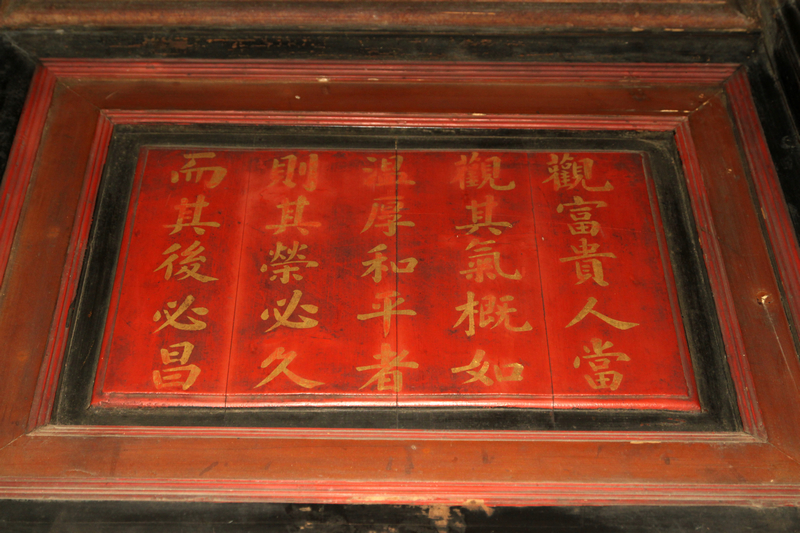 觀富貴人當
觀其氣概如
溫厚和平者
則其榮必久
而其後必昌